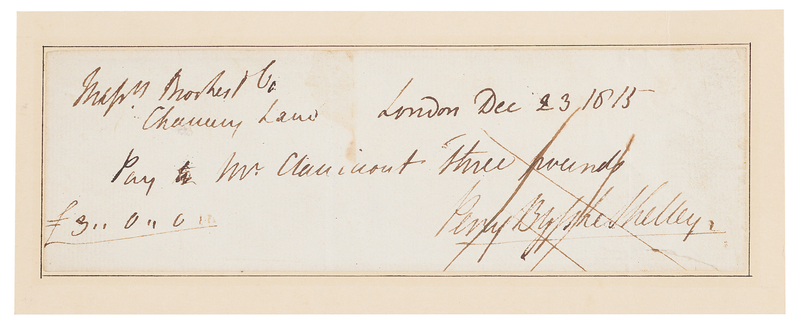 Messrs Brookes & Co
Chancery Lane
London Dec 23 1815
Pay to Mr. Clairmont three pounds
£3 " 0 " 0
Percy Bysshe Shelley.